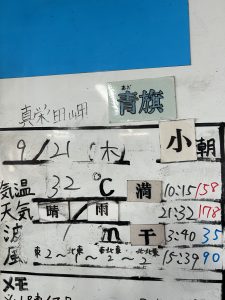 真栄田岬
あお
青旗
小 朝
9/21(木)
気温 32℃ 満 10:15 158
天気 晴/雨 21:32 178
波 m 干 3:40 35
風 東2〜北東2〜東2〜北北東2 15:39 90
メモ